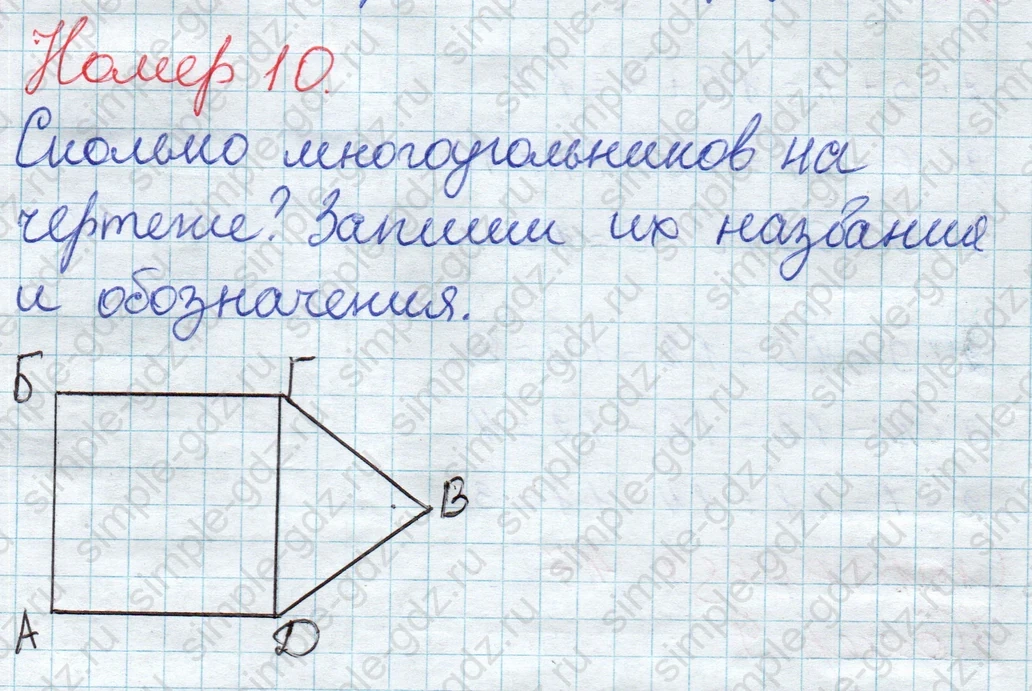 Номер 10.
Сколько многоугольников на
чертеже? Запиши их названия
и обозначения.
Б Г
В
А D
simple-gdz.ru